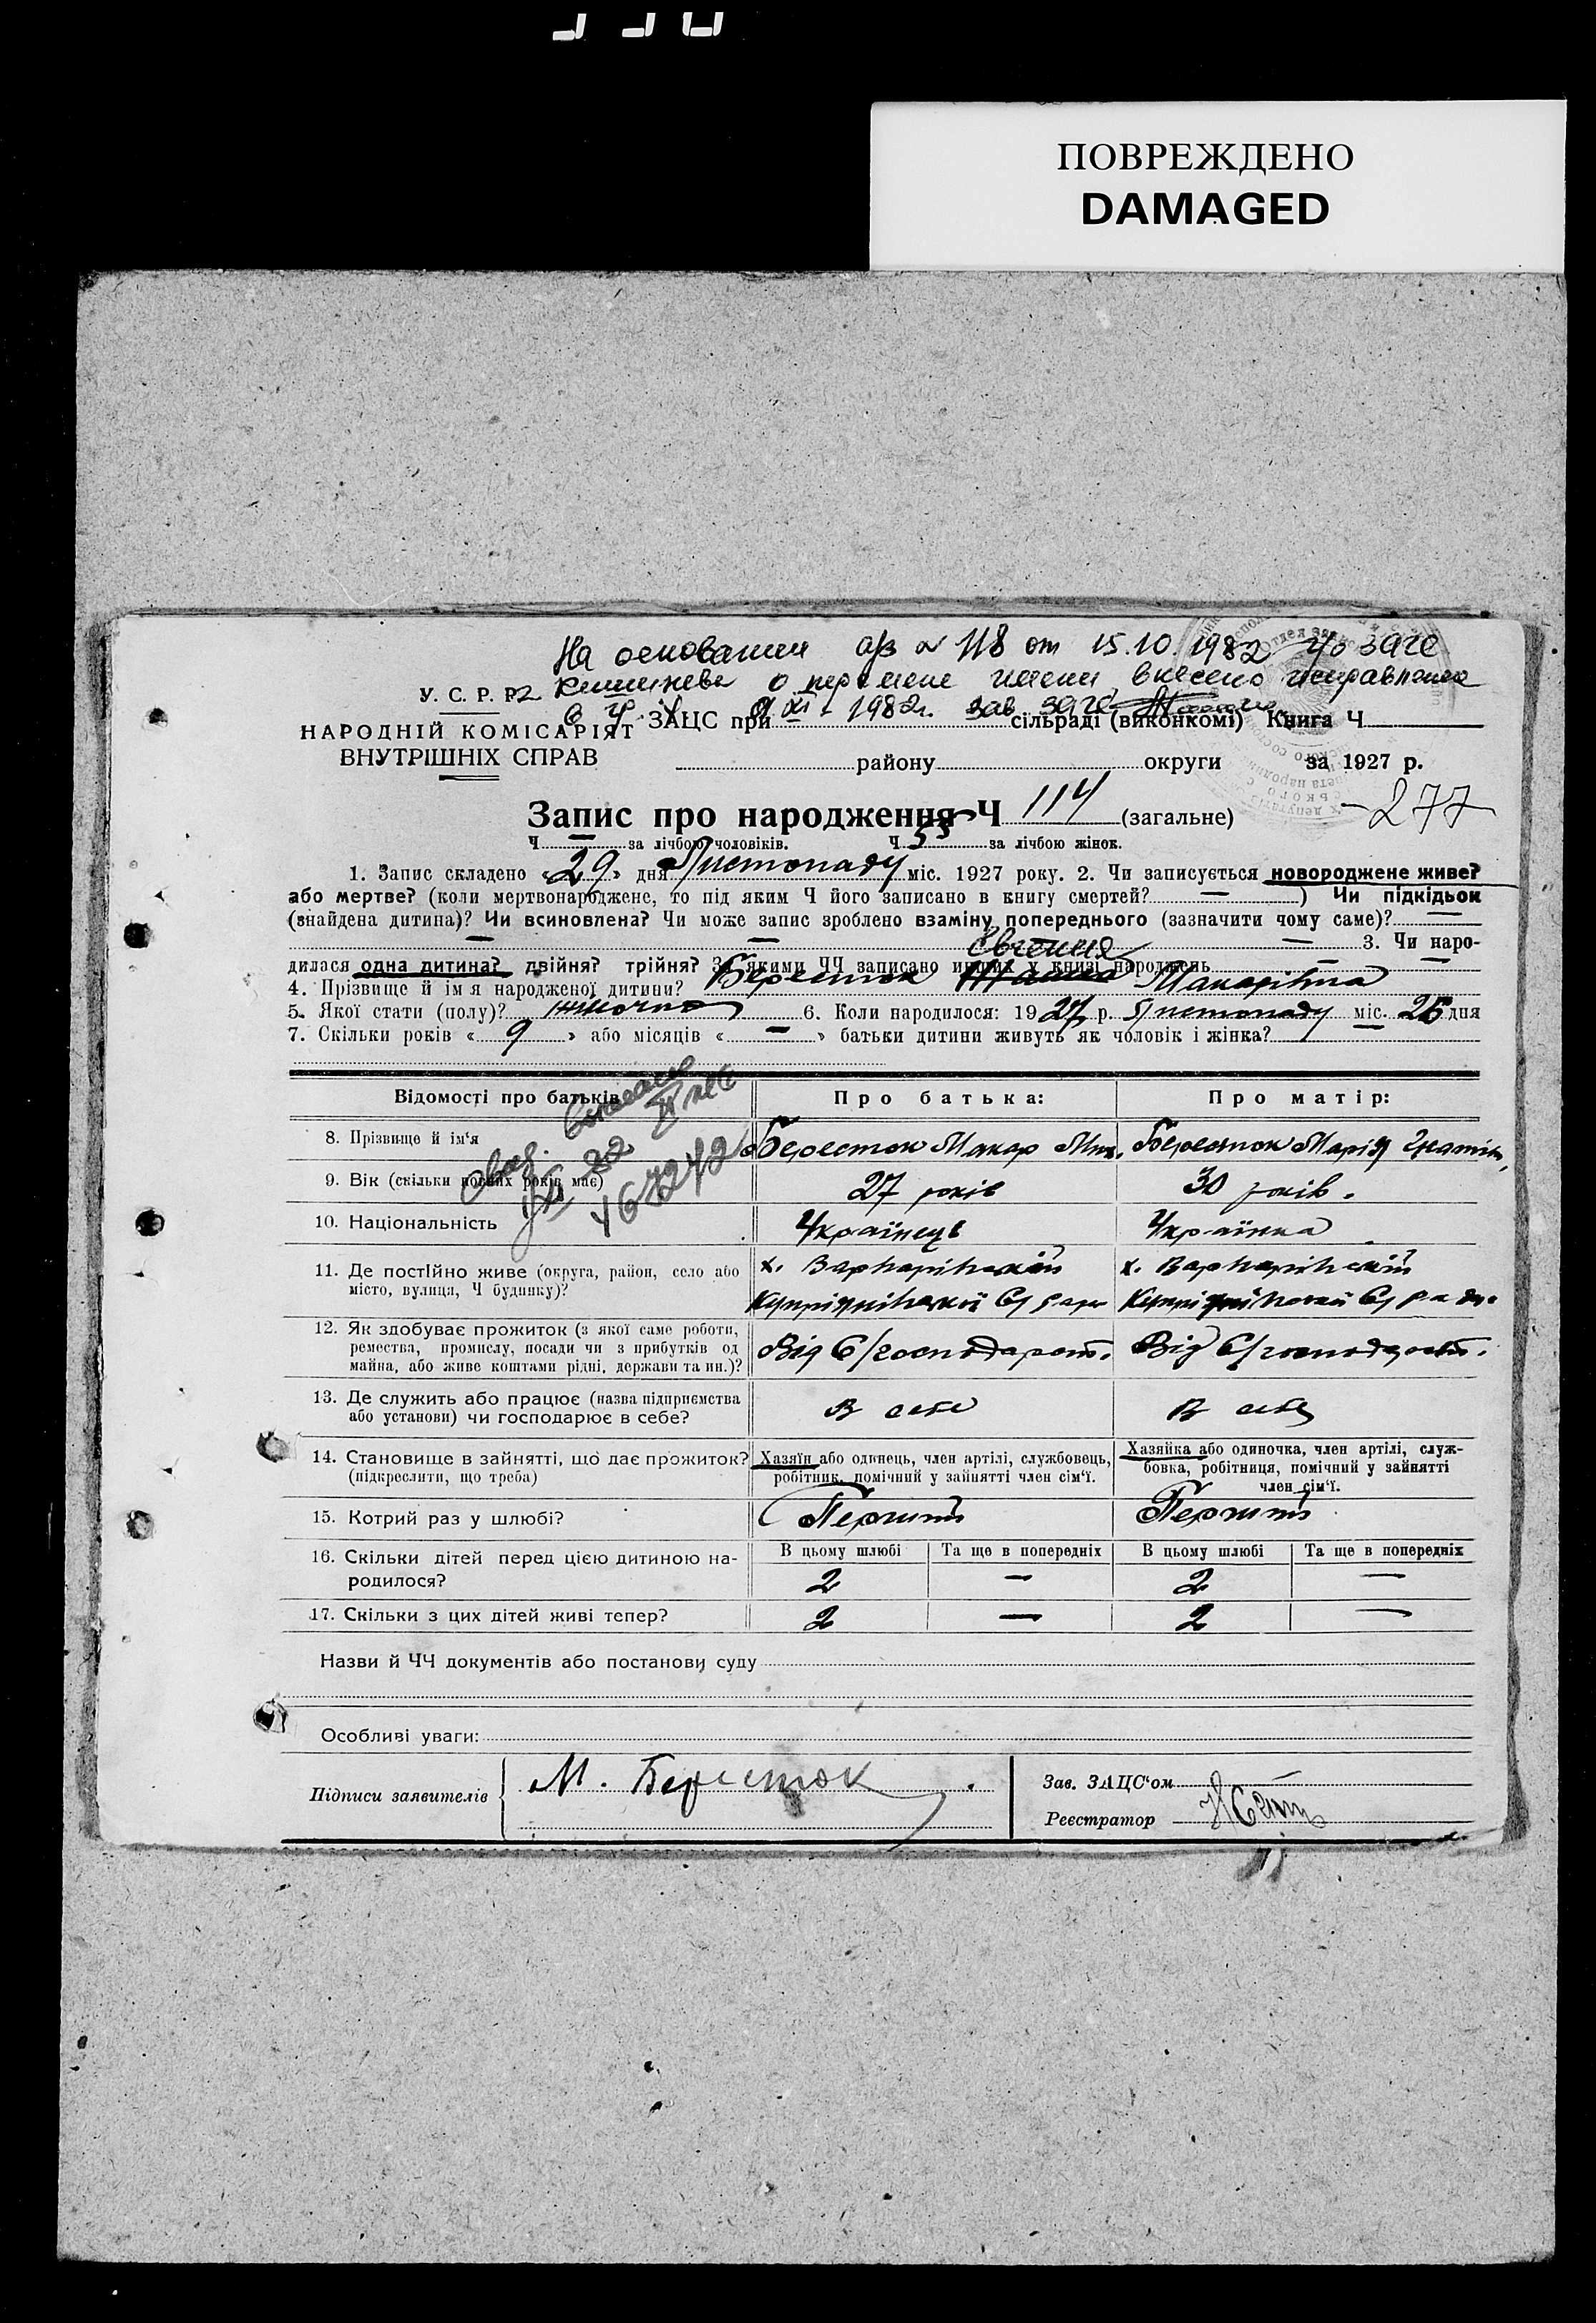 ПОВРЕЖДЕНО
DAMAGED
На основании а/з № 118 от 15.10.1982 г/о загс
Кишинева о перемене имени внесено исправление
9 XI - 1982г. зав загс
У. С. Р. Р.
НАРОДНІЙ КОМІСАРІЯТ
ВНУТРІШНІХ СПРАВ
ЗАЦС при сільраді (виконкомі) Книга Ч
району округи за 1927 р.
Запис про народження Ч 114 (загальне) - 277
Ч — за лічбою чоловіків. Ч 53 за лічбою жінок.
1. Запис складено « 29 » дня Листопаду міс. 1927 року. 2. Чи записується новороджене живе?
або мертве? (коли мертвонароджене, то під яким Ч його записано в книгу смертей? — ) Чи підкідьок
(знайдена дитина)? Чи всиновлена? Чи може запис зроблено взаміну попереднього (зазначити чому саме)? —
— — — 3. Чи наро-
дилася одна дитина? двійня? трійня? З якими ЧЧ записано инших у книзі народжень —
Евгения
4. Прізвище й ім'я народженої дитини? Бересток Макарівна
5. Якої стати (полу)? жіноча 6. Коли народилося: 1927 р. Листопаду міс. 26 дня
7. Скільки років « 9 » або місяців « — » батьки дитини живуть як чоловік і жінка?
Відомості про батьків Про батька: Про матір:
8. Прізвище й ім'я Бересток Макар Мик. Бересток Марія Гнатівн.
9. Вік (скільки повних років має) 27 років 30 років.
467242
10. Національність Українець Українка
11. Де постійно живе (округа, район, село або
місто, вулиця, Ч будинку)? х. х.
12. Як здобуває прожиток (з якої саме роботи,
ремества, промислу, посади чи з прибутків од
майна, або живе коштами рідні, держави та ин.)? Від С/господарст. Від С/господарст.
13. Де служить або працює (назва підприємства
або установи) чи господарює в себе? В себе В себе
14. Становище в зайнятті, що дає прожиток?
(підкреслити, що треба)
Хазяїн або одинець, член артілі, службовець,
робітник, помічний у зайнятті член сім'ї.
Хазяйка або одиночка, член артілі, служ-
бовка, робітниця, помічний у зайнятті
член сім'ї.
15. Котрий раз у шлюбі? Перший Перший
16. Скільки дітей перед цією дитиною на-
родилося?
В цьому шлюбі Та ще в попередніх В цьому шлюбі Та ще в попередніх
2 — 2 —
17. Скільки з цих дітей живі тепер? 2 — 2 —
Назви й ЧЧ документів або постанови суду
Особливі уваги:
Підписи заявителів М. Бересток
Зав. ЗАЦС'ом
Реєстратор